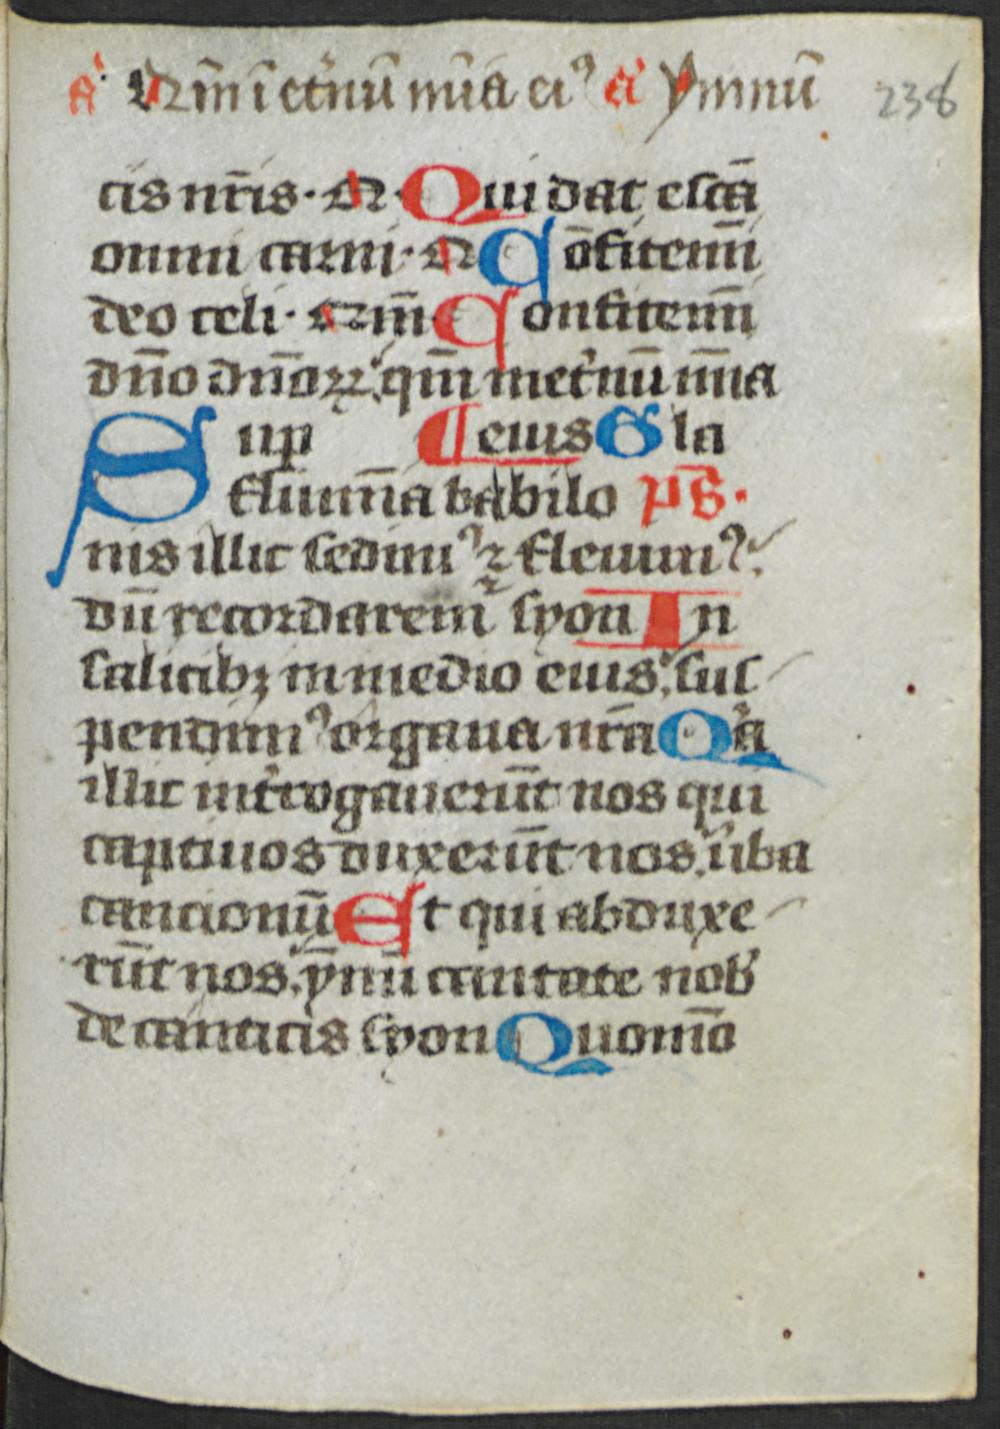 a᷎ Qm̄ ī et̓nū mīa ei᷒ a᷎ ymnū 238
cis nr̄is · Qm̄ · Qui dat escā
omni carni · Qm̄ Cōfitemī
deo celi · Qm̄ Confitemī
dn̄o dn̄oꝝ qm̄ in et̓nū mīa
eius Gla
Sup flumīa babilo ps̄.
nis illic sedim᷒ ⁊ fleuim᷒
dū recordarem̄ syon In
salicibꝫ in medio eius sus
pendim᷒ organa nr̄a Qa
illic int̓rogauerūt nos qui
captiuos duxerūt nos u̓ba
cancionū Et qui abduxe
rūt nos ymnū cantate nob̓
de canticis syon Quomō